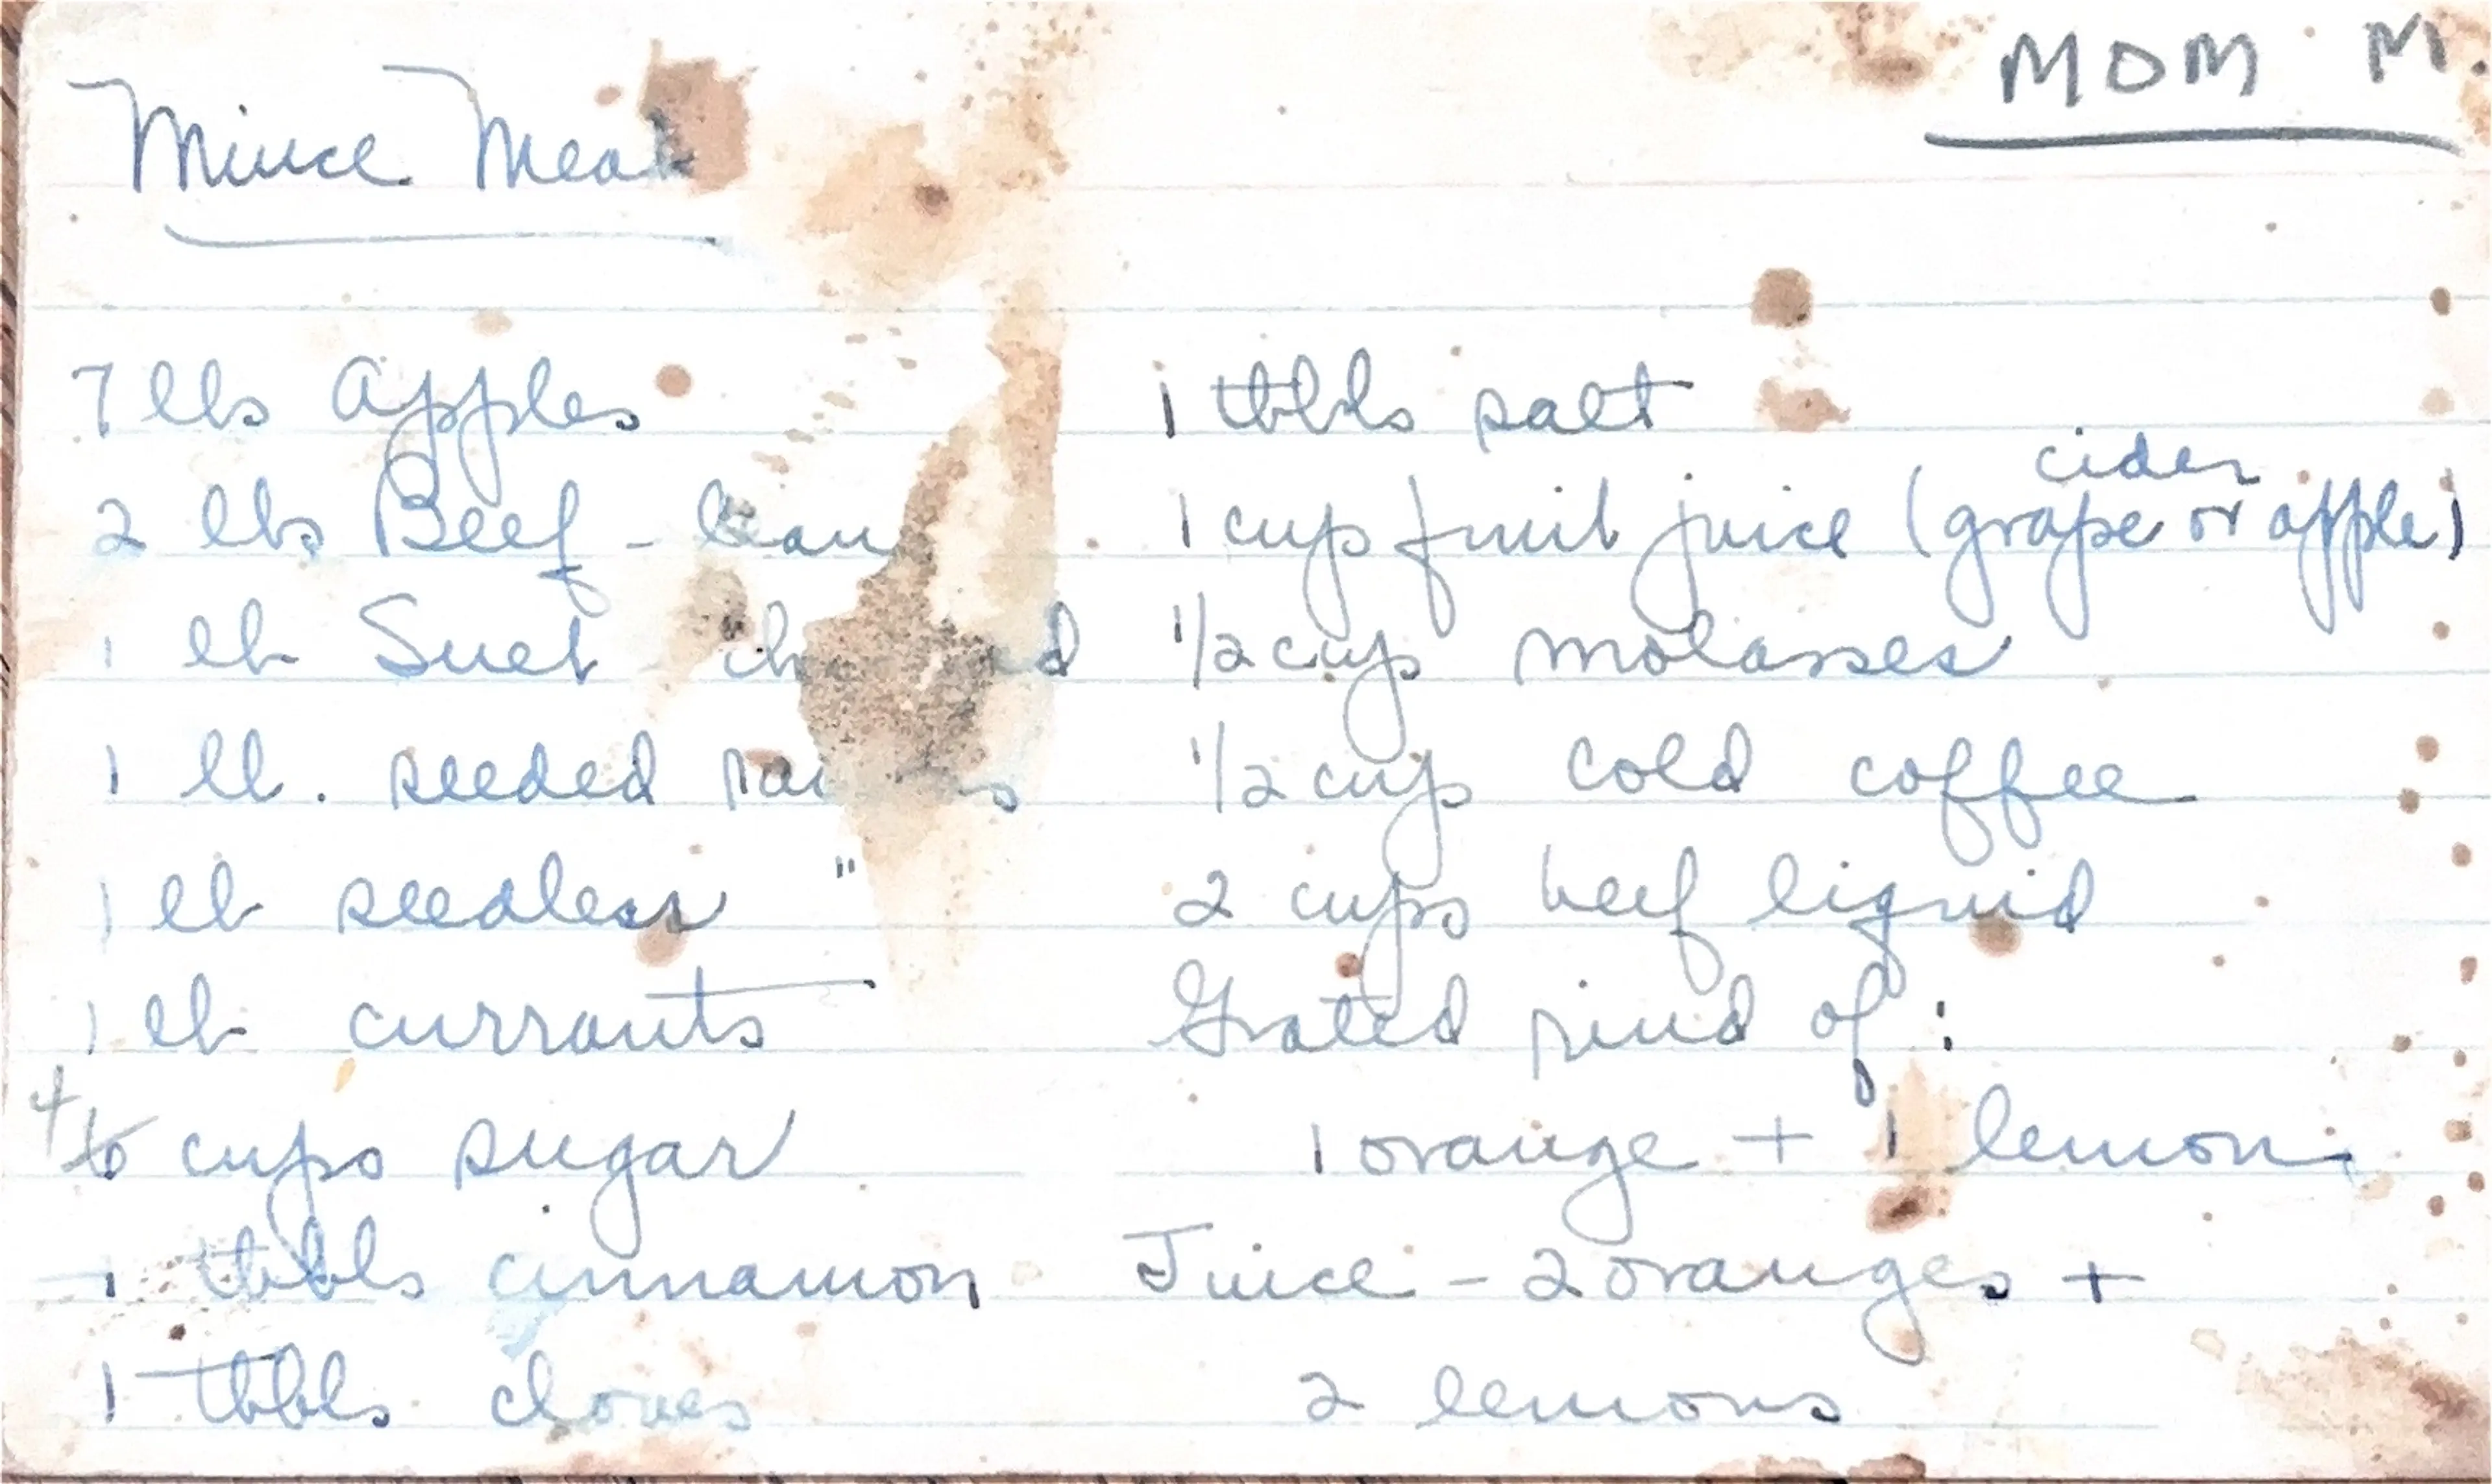 MOM M.
Mince Meat
7 lbs apples
2 lbs Beef - lean
1 lb Suet
1 lb. seeded
1 lb seedless "
1 lb currants
4 6 cups sugar
1 tbbls cinnamon
1 tbbls cloves
1 tbbls salt
cider
1 cup fruit juice (grape or apple)
1/2 cup molasses
1/2 cup cold coffee
2 cups beef liquid
Grated rind of :
1 orange + 1 lemon
Juice - 2 oranges +
2 lemons